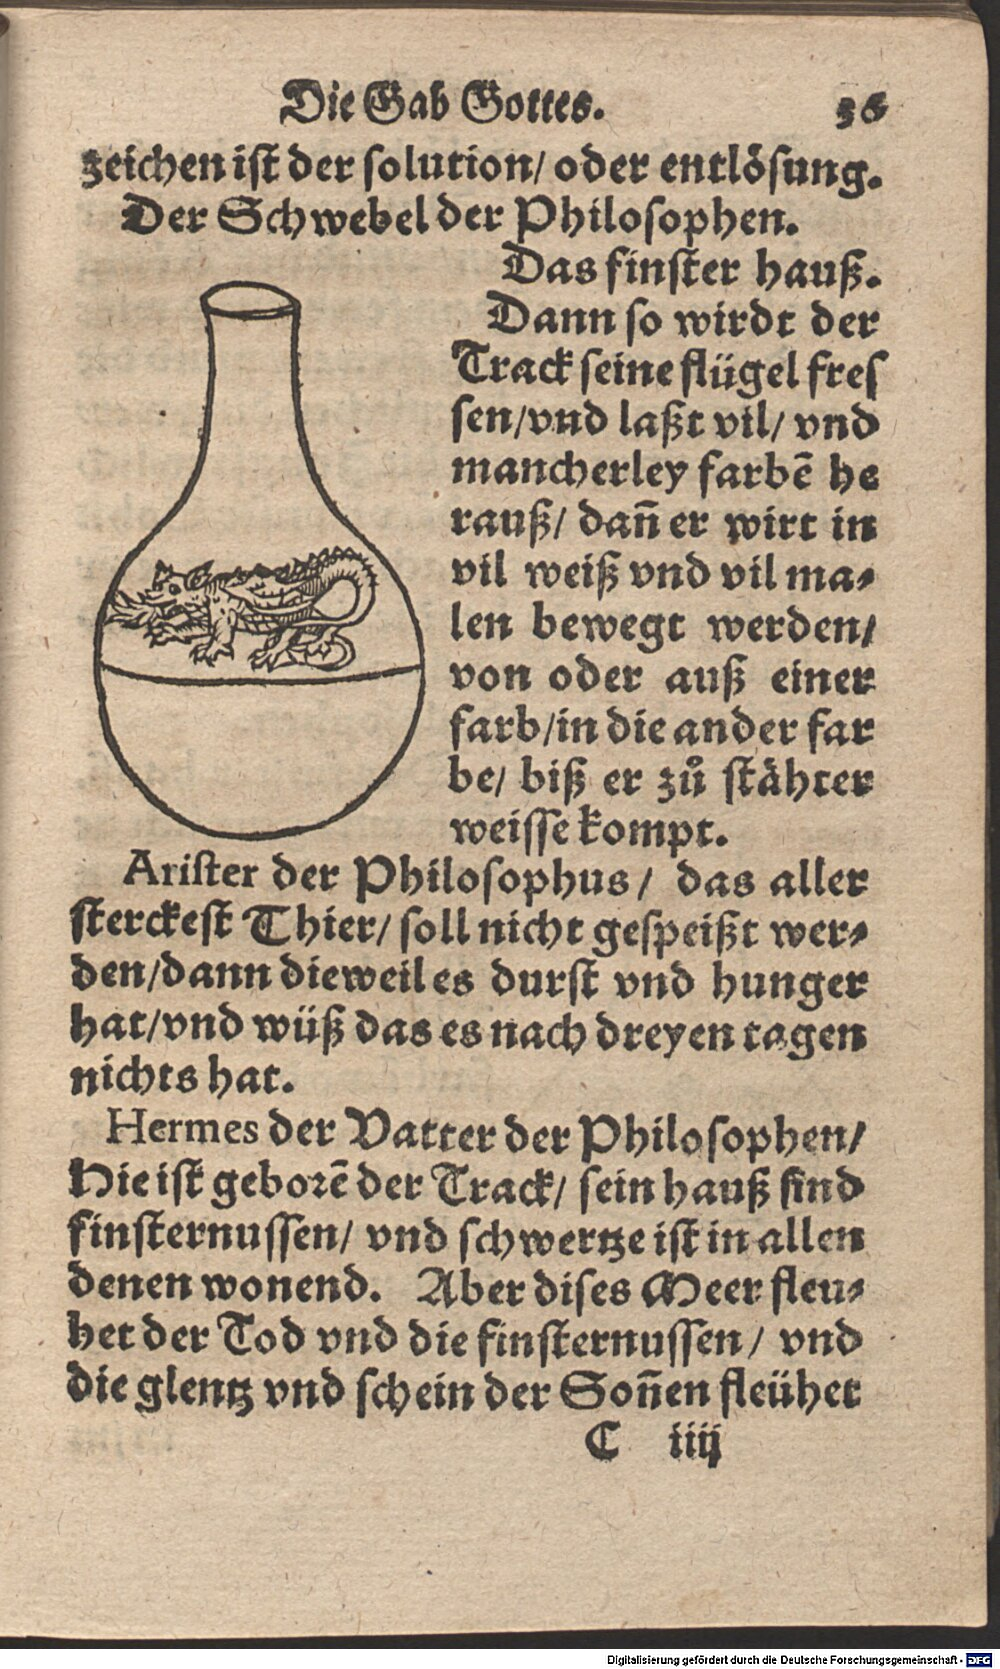 Die Gab Gottes. 36
zeichen ist der solution/ oder entlösung.
Der Schwebel der Philosophen.
Das finster hauß.
Dann so wirdt der
Track seine flügel fres
sen/vnd laßt vil/ vnd
mancherley farbē he
rauß/ dañ er wirt in
vil weiß vnd vil ma-
len bewegt werden/
von oder auß einer
farb/in die ander far
be/ biß er zů stähter
weisse kompt.
Arister der Philosophus/ das aller
sterckest Thier/ soll nicht gespeißt wer-
den/dann dieweil es durst vnd hunger
hat/vnd wüß das es nach dreyen tagen
nichts hat.
Hermes der Vatter der Philosophen/
Hie ist geborē der Track/ sein hauß sind
finsternussen/ vnd schwertze ist in allen
denen wonend. Aber dises Meer fleu-
het der Tod vnd die finsternussen/ vnd
die glentz vnd schein der Soñen fleühet
C iiij
Digitalisierung gefördert durch die Deutsche Forschungsgemeinschaft - DFG